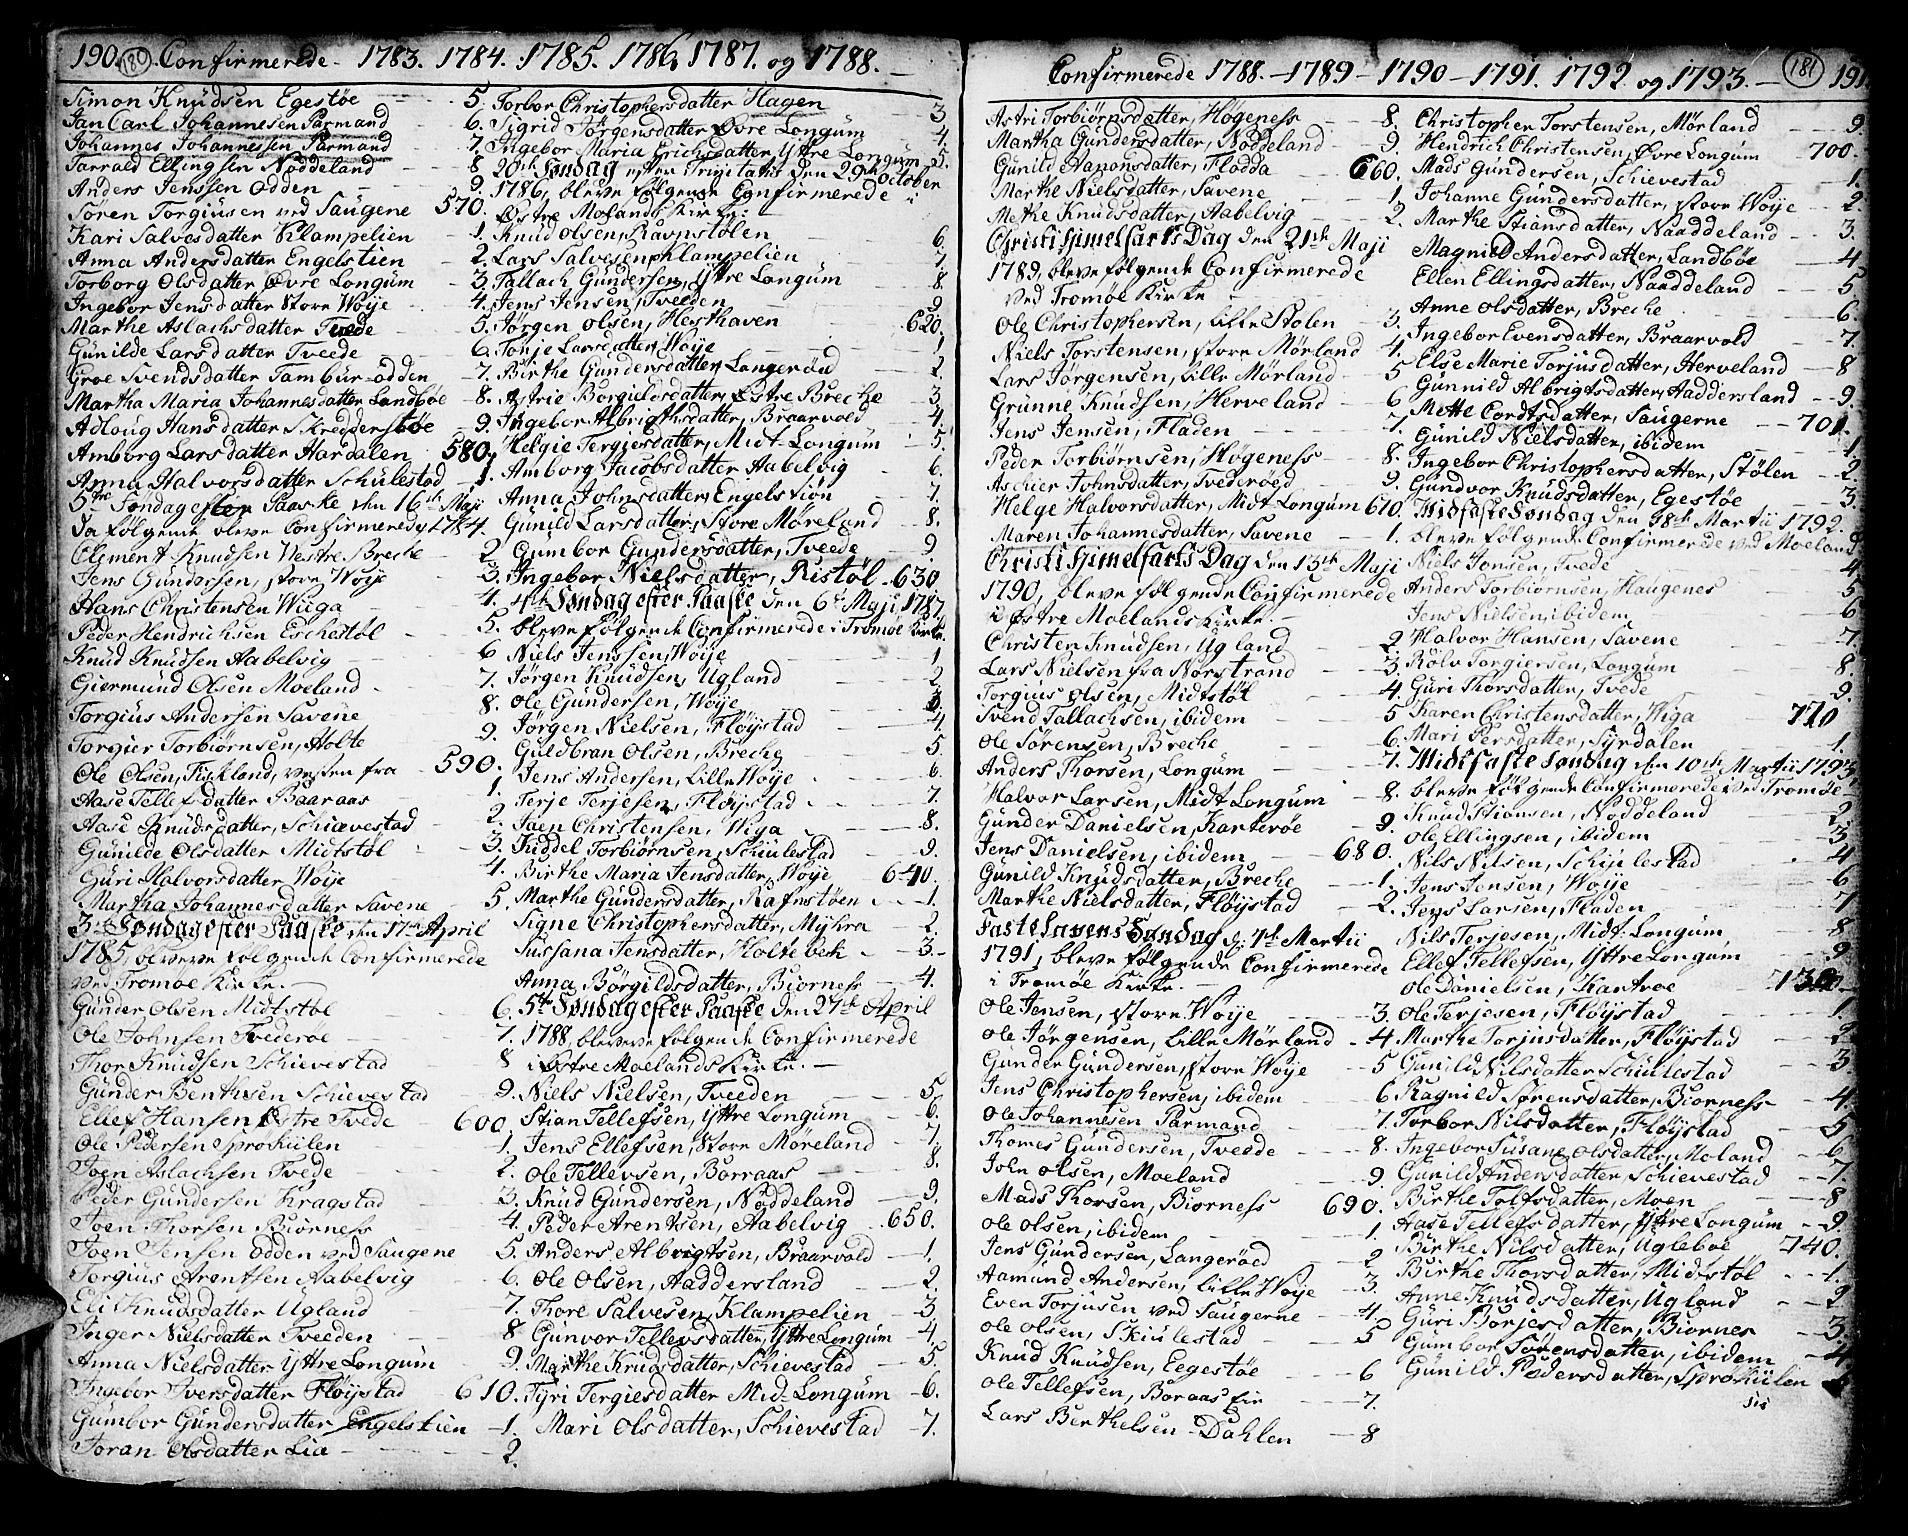 190. (180) Confirmerede - 1783. 1784. 1785. 1786, 1787. og 1788. -
Simon Knüdsen Egestøe - 5.
Jan Carl Johannesen Parmand - 6.
Johannes Johannessen Parmand 7.
Tarrald Ellingsen Nøddeland - 8
Anders Jenssen Odden - 9.
Søren Torgiusen ved Saugene 570.
Kari Salvesdatter Klampelien - 1.
Anna Andersdatter Engelstien - 2.
Torborg Olsdatter Øvre Longüm - 3.
Ingebor Jensdatter Store Woÿe - 4.
Marthe Aslachsdatter Tvede - 5.
Günilde Larsdatter Tveede - 6.
Groe Svendsdatter Tambur-odden - 7.
Martha Maria Johannesdatter Landbøe - 8.
Adloug Hansdatter Skredderstøe - 9.
Amborg Larsdatter Hardalen 580.
Anna Halvorsdatter Schülestad 1.
5te Søndag efter Paaske den 16de Maji
da følgende bleve Confirmerede 1784.
Clement Knudsen Vestre Breche - 2
Jens Gündersen, store Woÿe - 3.
Hans Christensen Wiiga - 4.
Peder Hendrichsen Eschestøl - 5.
Knüd Knüdsen Aabelvig - 6
Giermünd Olsen Moeland - 7.
Torgiüs Andersen Savene - 8.
Torgier Torbiørnsen, Holte 9.
Ole Olsen, Fiskland, vesten fra - 590.
Aase Tellefsdatter Baaraas - 1.
Aase Knüdsdatter, Schiævestad - 2.
Günilde Olsdatter Midtstøl - 3.
Güri Halvorsdatter Woÿe 4.
Martha Johannesdatter Savene - 5.
3de Søndag efter Paaske den 17de April
1785, bleve følgende Confirmerede
ved Tromøe Kirke. -
Günder Olsen Midtstøl 6.
Ole Johnsen Tvederøe - 7.
Thor Knüdsen Schievestad 8
Günder Benthsen Schievestad 9.
Ellef Hansen Østre Tvede 600.
Ole Pedersen Sprokiilen 1.
Joen Aslachsen Tvede - 2.
Peder Gündersen Kragstad 3.
Joen Thorsen Biørness 4.
Joen Jensen odden ved Saugene 5.
Torgiüs Arentsen Aabelvig - 6.
Eli Knüdsdatter Ugland - 7.
Inger Nielsdatter Tveeden - 8
Anna Nielsdatter Ÿttre Longüm 9.
Ingebor Iversdatter Fløÿstad - 610.
Gümbor Gündersdatter Engelstien - 1.
Joran Olsdatter Lia - 2.
Torbor Christophersdatter Hagen 3
Sigrid Jørgensdatter Øvre Longüm 4
Ingebor Maria Erichsdatter Ÿttre Longüm 5.
20de Søndag efter Trinitatis den 29de October
1786, bleve følgende Confirmerede i
Østre Molands Kirke. -
Knüd Olsen, Ravnstølen - 6.
Lars Salvesen Klampelien - 7.
Tallach Gündersen, Ÿttre Longüm - 8.
Jens Jensen, Tveeden - 9
Jørgen Olsen, Hesthaven - 620.
Tonje Larsdatter, Woÿe - 1
Birthe Gündersdatter, Langerød - 2.
Astrie Borgieldsdatter, Østre Breche - 3.
Ingebor Albrigthsdatter, Braarvold - 4.
Helgie Tergiesdatter, Midt Longüm - 5.
Amborg Jacobsdatter Aabelvig - 6.
Anna Johnsdatter, Engelstiøn - 7.
Günild Larsdatter, Store Møreland - 8.
Gümbor Gundersdatter, Tveede - 9.
Ingebor Nielsdatter, Ristøl - 630
4de Søndag efter Paaske den 6te Maji 1787.
bleve følgende Confirmerede i Tromøe Kirke.
Niels Jenssen, Woÿe - 1
Jørgen Knüdsen, Ugland - 2
Ole Gündersen, Woÿe - 3.
Jørgen Nielsen, Fløÿstad - 4
Guldbran Olsen, Breche - 5.
Jens Andersen, Lille Woÿe - 6.
Terje Terjesen, Fløÿstad - 7.
Jaen Christensen, Wiga - 8.
Kiddel Torbiørnsen, Schiülestad - 9.
Birthe Maria Jensdatter, Woÿe - 640.
Marthe Gündersdatter, Rafnstøen - 1.
Signe Christophersdatter, Mÿhra 2.
Sussana Jensdatter, Holtebek - 3.
Anna Børgildsdatter, Biorness - 4.
5te Søndag efter Paaske den 27de April
1788, bleve følgende Confirmerede
i Østre Moelands Kirke. -
Niels Nielsen, Tveeden - 5.
Stian Tellefsen, Ÿttre Longüm - 6.
Jens Ellefsen, Store Møreland - 7.
Ole Tellevsen, Borraas - 8.
Knüd Gündersen, Nøddeland - 9.
Peder Arentsen, Aabelvig - 650.
Anders Albrigtsen, Braarvold - 1.
Ole Olsen, Haddersland - 2.
Thore Salvesen, Klampelien - 3
Gunvor Tellevsdatter, Ÿttre Longüm - 4.
Marthe Knüdsdatter, Schievestad - 5.
Tyri Tergiesdatter Mid. Longüm - 6.
Mari Olsdatter, Schievestad - 7.
Confirmerede 1788. - 1789 - 1790 - 1791. 1792. og 1793. - (181) 191.
Astri Torbiørnsdatter, Høgeness - 8.
Martha Gündersdatter, Nøddeland - 9.
Günild Aanonsdatter, Flodda 660.
Marthe Nielsdatter, Savene - 1
Methe Knüdsdatter, Aabelvig - 2.
Christi Himelfarts Dag den 21de Maji
1789, bleve følgende Confirmerede
ved Tromøe Kirke -
Ole Christophersen, Lille Stølen - 3.
Niels Torstensen, store Mørland 4.
Lars Jørgensen, Lille Mørland - 5
Grünne Knüdsen, Herveland - 6
Jens Jensen, Fladen - 7.
Peder Torbiørnsen, Høgeness - 8.
Aschier Johnsdatter, Tvederøed - 9.
Helge Halvorsdatter, Midt Longüm 670.
Maren Johannesdatter, Savene - 1.
Christi Himelfarts Dag den 13de Maji
1790, bleve følgende Confirmerede
i Østre Moelands Kirke. -
Christen Knüdsen, Ugland - 2
Lars Nielsen fra Norstrand - 3.
Torgius Olsen, Midtstøl 4.
Svend Tallachsen, ibidem - 5
Ole Sørensen, Breche - 6.
Anders Thorsen, Longüm - 7.
Halvor Larsen, Midt Longüm - 8.
Günder Danielsen, Karterøe - 9.
Jens Danielsen, ibidem - 680.
Günild Knüdsdatter, Breche - 1.
Marthe Nielsdatter, Fløÿstad - 2.
Fastelavens Søndag d: 7de Martii
1791, bleve følgende Confirmerede
i Tromøe Kirke. -
Ole Jensen, store Woÿe - 3.
Ole Jørgensen, Lille Mørland - 4
Gunder Gündersen, store Woÿe - 5
Jens Christophersen, ibidem - 6
Ole Johannesen Parmand - 7.
Thomes Gündersen, Tveede - 8.
John Olsen, Moeland - 9
Mads Thorsen, Biorness 690.
Ole Olsen, ibidem - 1.
Jens Gündersen, Langerøed - 2
Aamund Andersen, Lille Woÿe - 3.
Even Torjusen ved Saugerne - 4.
Ole Olsen, Skiülestad - 5
Knud Knüdsen, Eegestøe - 6
Ole Tellefsen, Boraas - 7.
Lars Berthelsen Dahlen - 8
Christopher Torstensen, Mørland - 9.
Hendrich Christensen, Øvre Longüm 700.
Mads Gündersen, Schievestad - 1.
Johanne Gündersdatter, store Woÿe - 2
Marthe Stiansdatter, Naaddeland - 3.
Magnild Andersdatter, Landbøe - 4
Ellen Ellingsdatter, Naaddeland - 5
Anne Olsdatter, Breche - 6.
Ingebor Evensdatter, Braarvold - 7.
Else Marie Torjüsdatter, Herveland - 8
Günnild Albrigtsdatter, Haddersland - 9.
Mette Cordtsdatter, Saugerne - 701.
Günild Nielsdatter, ibidem - 1
Ingebor Christophersdatter, Stølen - 2.
Gündvor Knüdsdatter, Egestøe - 3.
Midfaste Søndag den 18de Martii 1792.
bleve følgende Confirmerede ved Moeland
Niels Jonsen, Tvede - 4
Anders Torbiørnsen, Haugenes - 5
Jens Nielsen, ibidem - 6
Halvor Hansen, Savene - 7.
Rolv Torgiersen, Longüm - 8.
Güri Thorsdatter, Tvede - 9.
Karen Christensdatter, Wiga 710
Mari Persdatter, Sÿrdalen - 1.
Midtfaste Søndag den 10de Martii 1793
bleve følgende Confirmerede ved Tromøe
Knüd Stiansen, Nøddeland - 2
Ole Ellingsen, ibidem - 3
Nils Nilsen, Schiülestad - 4
Jens Jensen, Woÿe - 6
Jens Larsen, Fladen - 7
Nils Terjesen, Midt-Longüm - 8
Ellef Tellefsen, Ÿttre Longüm - 9.
Ole Danielsen, Kartroe - 730
Ole Terjesen, Fløÿstad - 1.
Marthe Torjusdatter, Fløÿstad - 2
Gunild Nilsdatter Schiülestad - 3.
Ragnild Sørensdatter, Biorness - 4.
Torbor Nilsdatter, Fløÿstad - 5
Ingebor Susane Olsdatter, Moland - 6
Gunild Andersdatter Schievestad - 7.
Birthe Tolfsdatter, Moen - 8
Aase Tellefsdatter, Ÿttre Longüm - 9.
Birthe Nilsdatter, Ugleboe 740.
Birthe Thorsdatter, Midtstøl - 1.
Anne Knüdsdatter, Ugland - 2
Güri Borjesdatter, Biornes - 3.
Gümbor Sørensdatter, ibidem - 4
Günild Pedersdatter, Sprokiilen